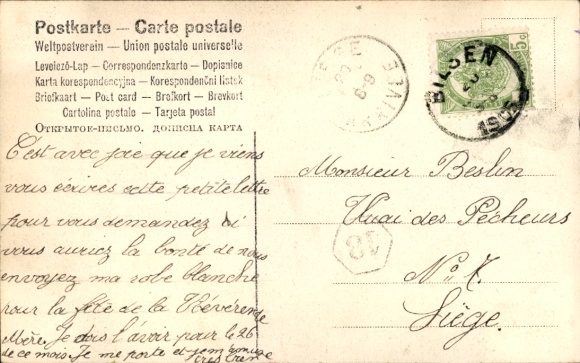 Postkarte — Carte postale
Weltpostverein — Union postale universelle
Levelező-Lap — Correspondenzkarte — Dopisnice
Karta korespondencyjna — Korespondenční lístek
Briefkaart — Post card — Brefkort — Brevkort
Cartolina postale — Tarjeta postal
Открытое-письмо. дописна карта
C'est avec joie que je viens
vous écrires cette petite lettre
pour vous demandez si
vous auriez la bonté de nous
envoyez ma robe blanche
pour la fête de la Révérende
Mère. Je dois l'avoir pour le 26
de ce mois. Je me porte et je m'amuse
très bien
Monsieur Beslin
Quai des Pêcheurs
No 7.
Liège.
BILSEN
1905
5c
18